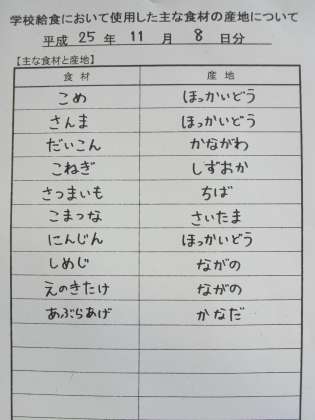 学校給食において使用した主な食材の産地について
平成 25 年 11 月 8 日分
【主な食材と産地】
食材 産地
こめ ほっかいどう
さんま ほっかいどう
だいこん かながわ
こねぎ しずおか
さつまいも ちば
こまつな さいたま
にんじん ほっかいどう
しめじ ながの
えのきたけ ながの
あぶらあげ かなだ